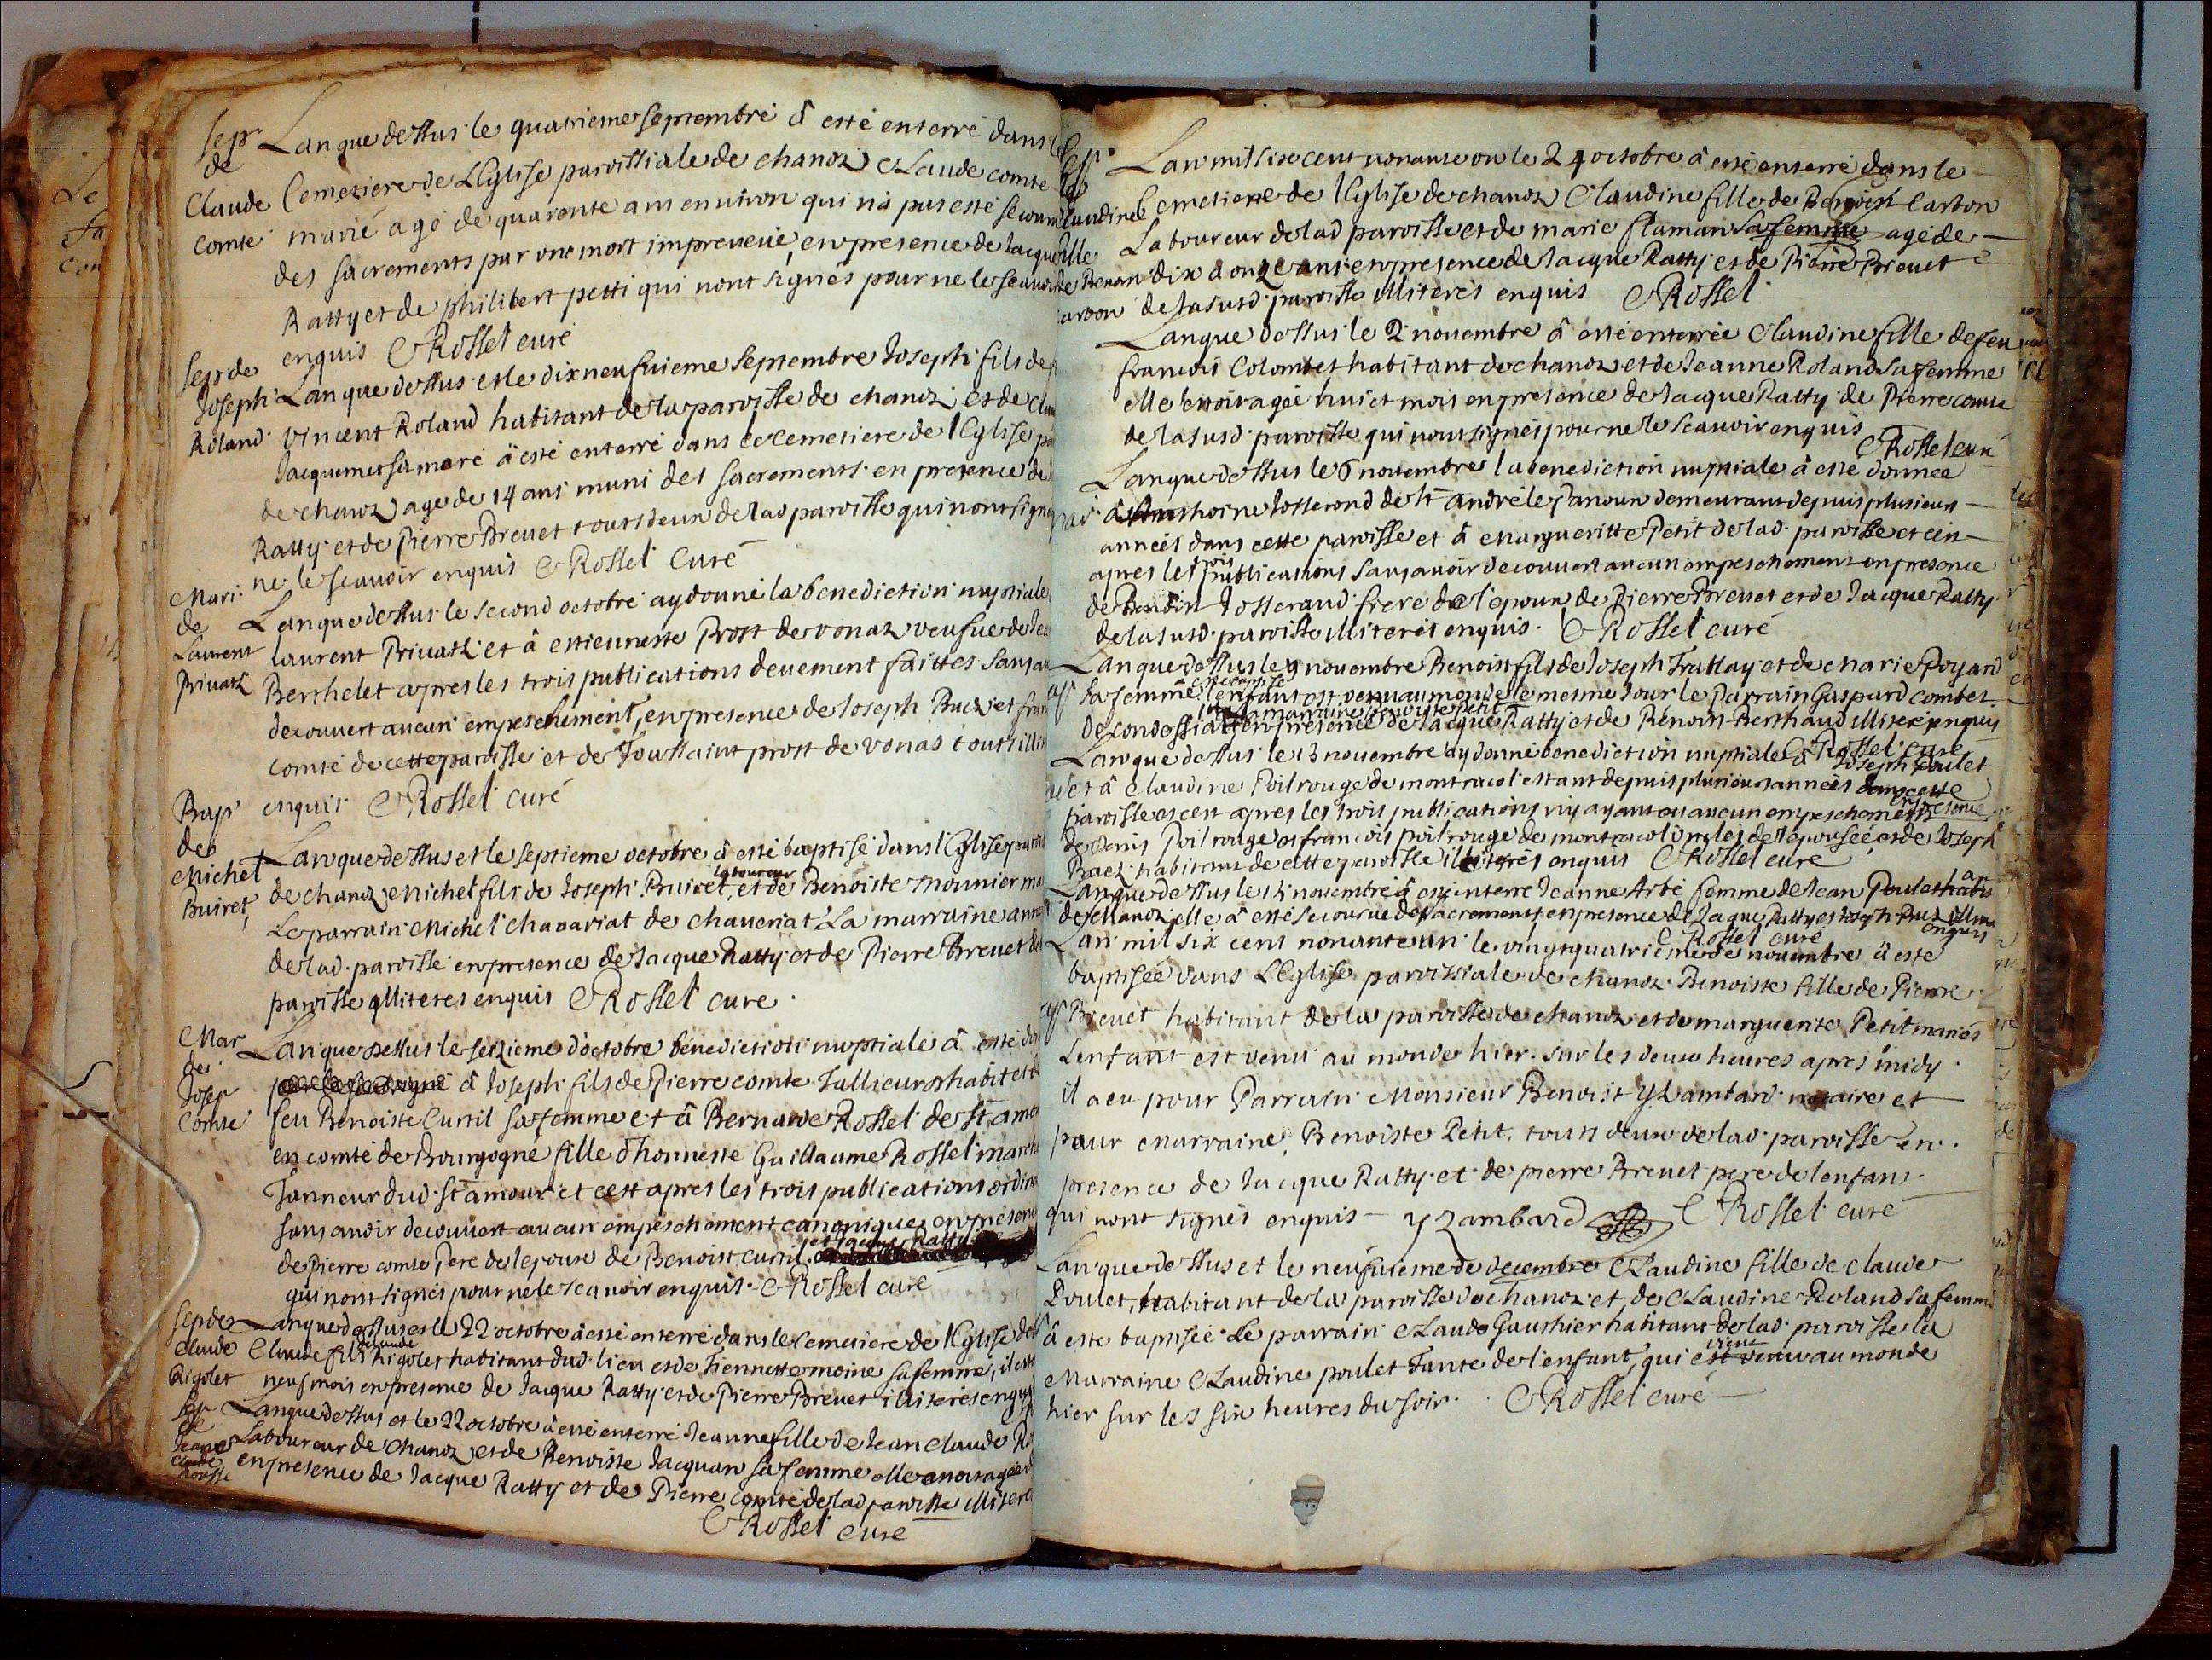 Sep.
de
Claude
Comte
Lan que dessus le quatrieme septembre â esté enterré dans le
Cemetiere de LEglise paroissiale de chanoz Claude comte
marié agé de quarente ans environ qui nâ pas esté secouru
des sacrements par une mort impreveüe, en presence de Jacque
Ratty et de philibert petti qui nont signés pour ne le scavoir
enquis CRossel curé
Sep de
Joseph
Roland
Lan que dessus et le dix neufuieme Septembre Joseph fils de
Vincent Roland habitant de la paroisse de chanoz et de
Jacquemet sa mere â esté enterré dans le cemetiere de lEglise
de chanoz age de 14 ans muni des sacrements en presence de
Ratty et de Pierre Brevet touts deux de lad paroisse qui nont signé
ne le scauoir enquis CRossel Curé
Mari.
de
Laurent
Privatz
Lan que dessus le second octobre ay donné la benediction nuptiale
laurent Privatz et â estiennette Prost de vonaz veufue de
Berthelet apres les trois publications deuement faittes sans
decouvert aucun empeschement, en presence de Joseph Buez et
comte de cette paroisse et de Toussaint prost de vonas touts
enquis CRossel curé
Bap
de
Michel
Buiret
Lan que dessus et le septieme octobre â esté baptisé dans lEglise
de chanoz Michel fils de Joseph Buiret laboureur et de Benoiste mounier
Le parrain Michel chavariat de chaveriat La marraine
de lad. paroisse en presence de Jacque Ratty et de Pierre Brevet
paroisse illiteres enquis CRossel curé.
Mar
de
Josep
Comte
Lan que dessus le seizieme doctobre benediction nuptiale â esté
â Joseph fils de Pierre comte Tallieur et habit et de
feu Benoiste Curtil sa femme et â Bernarde Rossel de St. amour
en comté de Bourgogne fille dhonneste Guillaume Rossel
Tanneur dud. St amour et cest apres les trois publications
sans avoir decouvert aucun empeschement canonique en
de Pierre comte Pere de lepoux de Benoist curtil et Jacque Ratty
qui nont signés pour ne le scauoir enquis. CRossel curé
Sep de
Claude
Rigolet
Lan que dessus et le 22 octobre â esté enterré dans le cemetiere de lEglise
Claude fils Rigolet habitant dud. lieu et de Tiennette moine sa femme,
neuf mois en presence de Jacque Ratty et de Pierre Brevet illiteres
Sep
de
Jeanne
claude
Lan que dessus et le 22 octobre â esté enterré Jeanne fille de Jean claude
Laboureur de chanoz et de Benoiste Jacquan sa femme elle
en presence de Jacque Ratty et de Pierre comte de lad paroisse
CRossel curé
Lan mil six cent nonante un le 24 octobre â esté enterré dans le
Cemetiere de lEglise de chanoz Claudine fille de Benoist Carbon
Laboureur de lad paroisse et de marie flaman sa femme agé de
dix â onze ans en presence de Jacque Ratty et de Pierre Brevet
de la susd. paroisse illiterés enquis CRossel
Lan que dessus le 2 novembre â esté enterrée Claudine fille de feu
francois Colombet habitant de chanoz et de Jeanne Roland sa femme
elle agée huict mois en presence de Jacque Ratty de Pierre comte
de la susd. paroisse qui nont signés pour ne le scauoir enquis
CRossel curé
Lan que dessus le 6 novembre la benediction nuptiale â esté donnée
â Anthoine Josserand de St andré le Panoux demeurant depuis plusieurs
années dans cette paroisse et â Margueritte Petit de lad. paroisse et cest
apres les trois publications sans avoir decouvert aucun empeschement en presence
de Josserand frere de lepoux de Pierre Brevet et de Jacque Ratty
de la susd. paroisse illiterés enquis. CRossel curé
Lan que dessus le 9 novembre Benoist fils de Joseph Trablay et de Marie Poyard
sa femme lenfant est venu au monde le mesme jour le Parrain Gaspard combet
de condessiat la marraine benoiste petit en presence de Jacque Ratty et de Benoist Berthaud illiteres enquis
CRossel curé
Lan que dessus le 13 novembre ay donné benediction nuptiale â Joseph Poulet
et â Claudine Poilrouge de montracol estant depuis plusieurs années dans cette
paroisse et cest apres les trois publications ny ayant eu aucun empeschement en presence
de Denis Poilrouge et francois poilrouge de montracol oncles de lepousée et de Joseph
Buez habitans de cette paroisse illiterés enquis CRossel curé
Lan que dessus le 14 novembre â esté enterré Jeanne Arbé femme de Jean Poulet
de chanoz elle â esté secourue des sacrements en presence de Jacque Ratty et Joseph Buez
enquis
CRossel curé
Lan mil six cent nonante un le vingt quatrieme de novembre â esté
baptisée dans LEglise paroissiale de chanoz Benoiste fille de Pierre
Brevet habitant de la paroisse de chanoz et de marguerite Petit mariés
Lenfant est venu au monde hier sur les deux heures apres midy.
il a eu pour Parrain Monsieur Benoist Yzambard notaire et
pour Marraine Benoiste Petit, touts deux de lad. paroisse en
presence de Jacque Ratty et de pierre Brevet pere de lenfant
qui nont signés enquis yzambard CRossel curé
Lan que dessus et le neufuieme de decembre Claudine fille de claude
Poulet, habitant de la paroisse de chanoz et de Claudine Roland sa femme
â esté baptisée le parrain Claude Gauthier habitant de lad. paroisse la
Marraine Claudine poulet Tante de lenfant, qui est venu au monde
hier sur les six heures du soir. CRossel curé